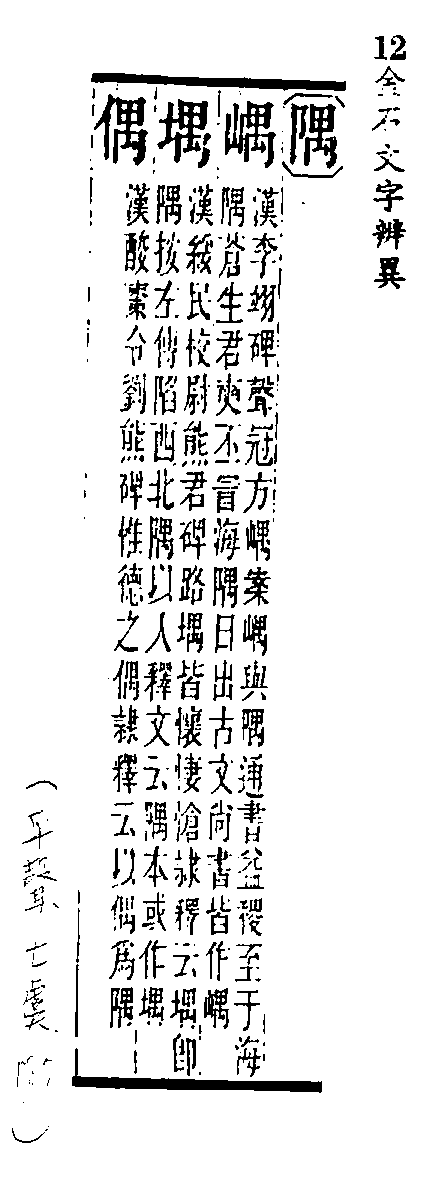 12金石文字辨異
隅
嵎 漢李翊碑聲冠方嵎案嵎與隅通書益稷至于海
隅蒼生君奭丕冒海隅日出古文尚書皆作嵎
堣 漢綏民校尉熊君碑路堣皆懷悽愴隷釋云堣卽
隅按左傳陷西北隅以入釋文云隅本或作堣
偶 漢酸棗令劉熊碑惟德之偶隷釋云以偶爲隅
(平聲 七虞